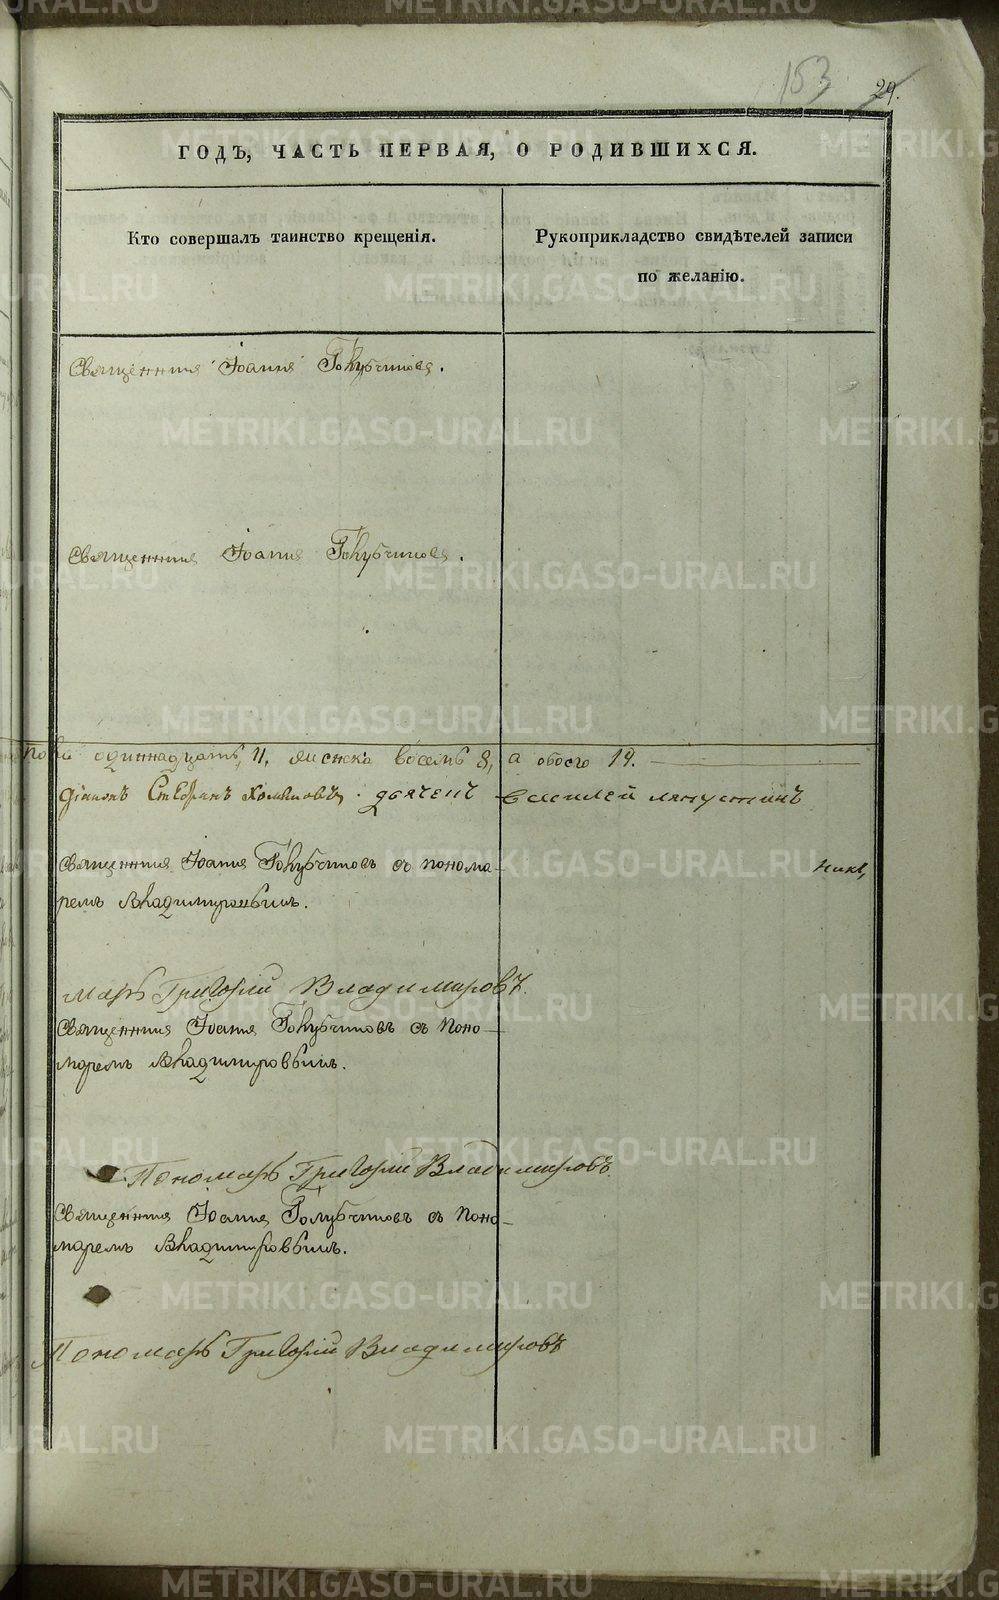 153
29.
ГОДЪ, ЧАСТЬ ПЕРВАЯ, О РОДИВШИХСЯ.
Кто совершалъ таинство крещенія.
Рукоприкладство свидѣтелей записи
по желанію.
Священникъ Іоаннъ Голубчиковъ.
Священникъ Іоаннъ Голубчиковъ.
пола одиннадцать, 11, женска восемь 8, а обоего 19.
діаконъ Стефанъ дьячекъ василей ляпустинъ
Священникъ Іоаннъ Голубчиковъ съ понома-
ремъ Владимировымъ.
марь Григорий Владимировъ.
Священникъ Іоаннъ Голубчиковъ съ Поно-
маремъ Владимировымъ.
Пономарь Григорий Владимировъ.
Священникъ Іоаннъ Голубчиковъ съ Поно-
маремъ Владимировымъ.
Пономарь Григорий Владимировъ
METRIKI.GASO-URAL.RU